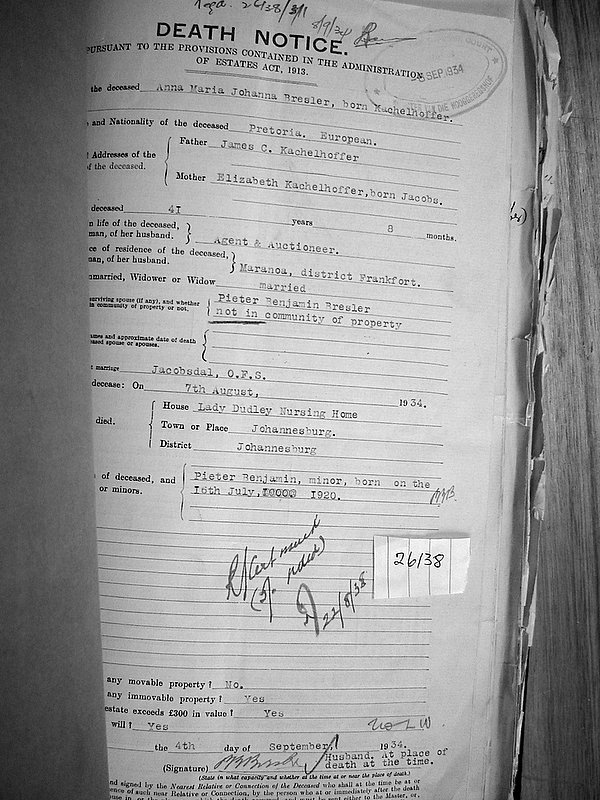 DEATH NOTICE.
PURSUANT TO THE PROVISIONS CONTAINED IN THE ADMINISTRATION
OF ESTATES ACT, 1913.
5/9/34
SEP 1934
the deceased Anna Maria Johanna Bresler, born Kachelhoffer.
and Nationality of the deceased Pretoria. European.
Addresses of the
of the deceased.
Father James C. Kachelhoffer
Mother Elizabeth Kachelhoffer, born Jacobs.
deceased 41 years 8 months.
n life of the deceased,
man, of her husband.
Agent & Auctioneer.
ce of residence of the deceased,
man, of her husband.
Maranoa, district Frankfort.
unmarried, Widower or Widow married
surviving spouse (if any), and whether
in community of property or not.
Pieter Benjamin Bresler
not in community of property
ames and approximate date of death
ased spouse or spouses.
marriage Jacobsdal, O.F.S.
decease: On 7th August, 1934.
died.
House Lady Dudley Nursing Home
Town or Place Johannesburg.
District Johannesburg
of deceased, and
or minors.
Pieter Benjamin, minor, born on the
16th July, 1920.
26/38
22/8/38
any movable property? No.
any immovable property? Yes
estate exceeds £300 in value? Yes
will? Yes
the 4th day of September, 1934.
(Signature)
Husband. At place of
death at the time.
(State in what capacity and whether at the time at or near the place of death.)
nd signed by the Nearest Relative or Connection of the Deceased who shall at the time be at or
ence of such near Relative or Connection, by the person who at or immediately after the death